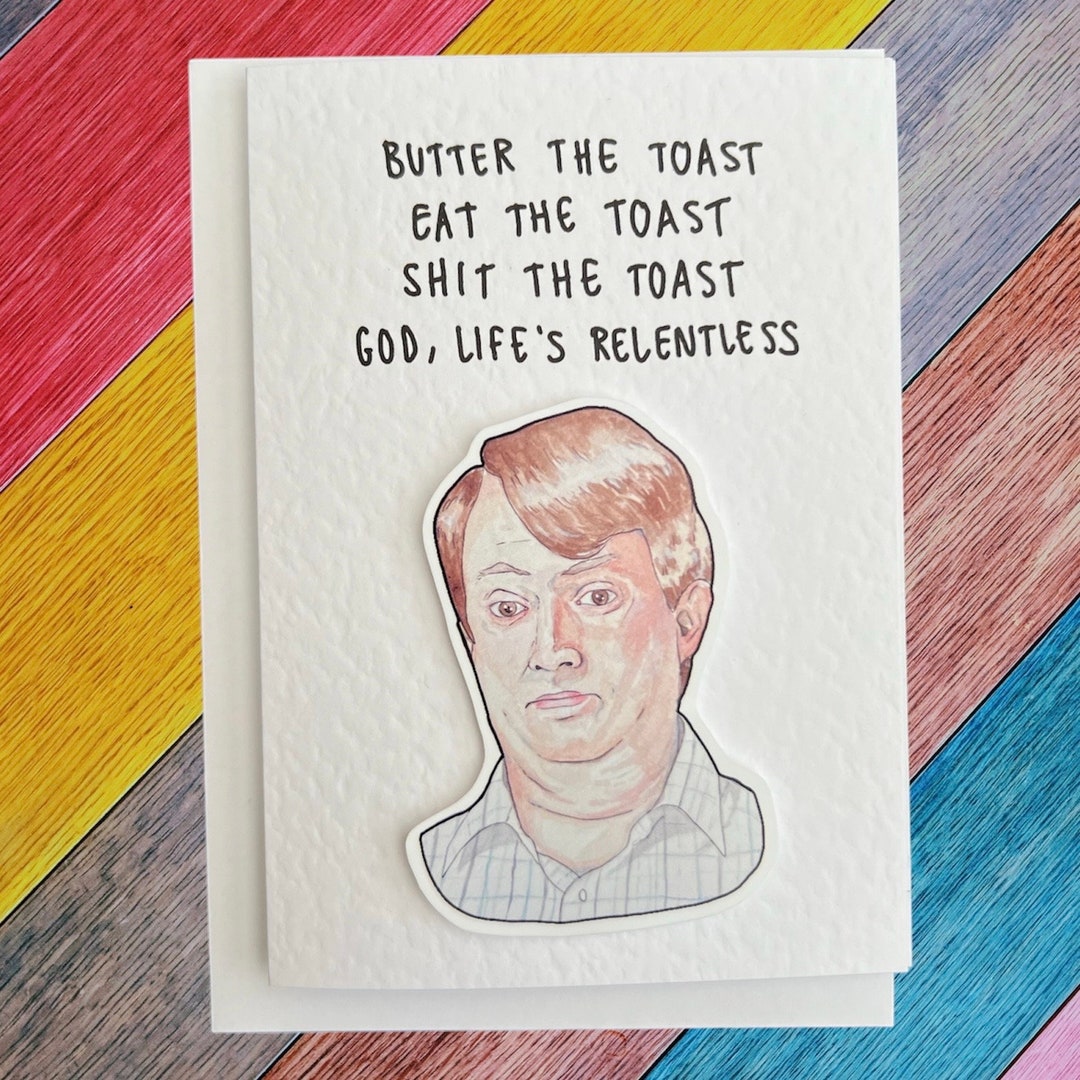 BUTTER THE TOAST
EAT THE TOAST
SHIT THE TOAST
GOD, LIFE'S RELENTLESS